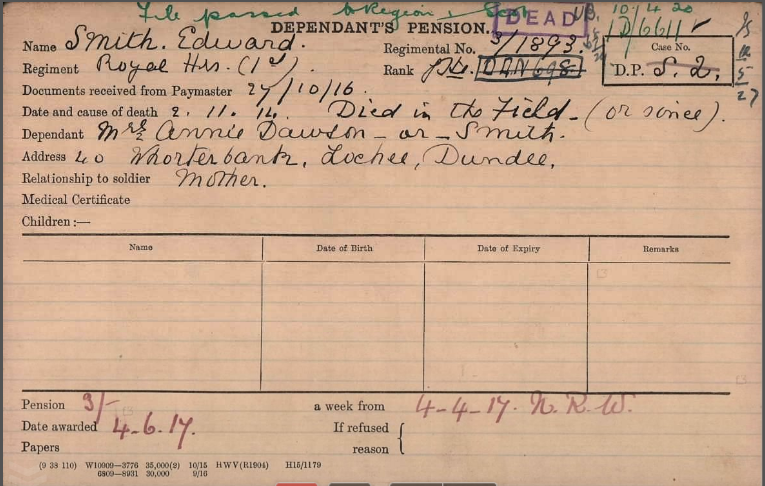 File passed to Region. Scot
DEAD
10.4.20
DEPENDANT'S PENSION.
1D/6611 ✓
Name Smith. Edward.
Regimental No. 3/1893
Case No.
Regiment Royal Hrs. (1st).
Rank Pte.
D.P. S. 2.
Documents received from Paymaster 27/10/16.
Date and cause of death 2. 11. 14. Died in the Field - (or since).
Dependant Mrs Annie Dawson - or - Smith.
Address 40 Whorterbank, Lochee, Dundee,
Relationship to soldier Mother.
Medical Certificate
Children :—
Name Date of Birth Date of Expiry Remarks
Pension 3/- a week from 4-4-17. N.R.W.
Date awarded 4.6.17. If refused
Papers reason {
(9 38 110) W10909—3776 35,000(2) 10/15 HWV(R1904) H15/1179
6809—8931 30,000 9/16